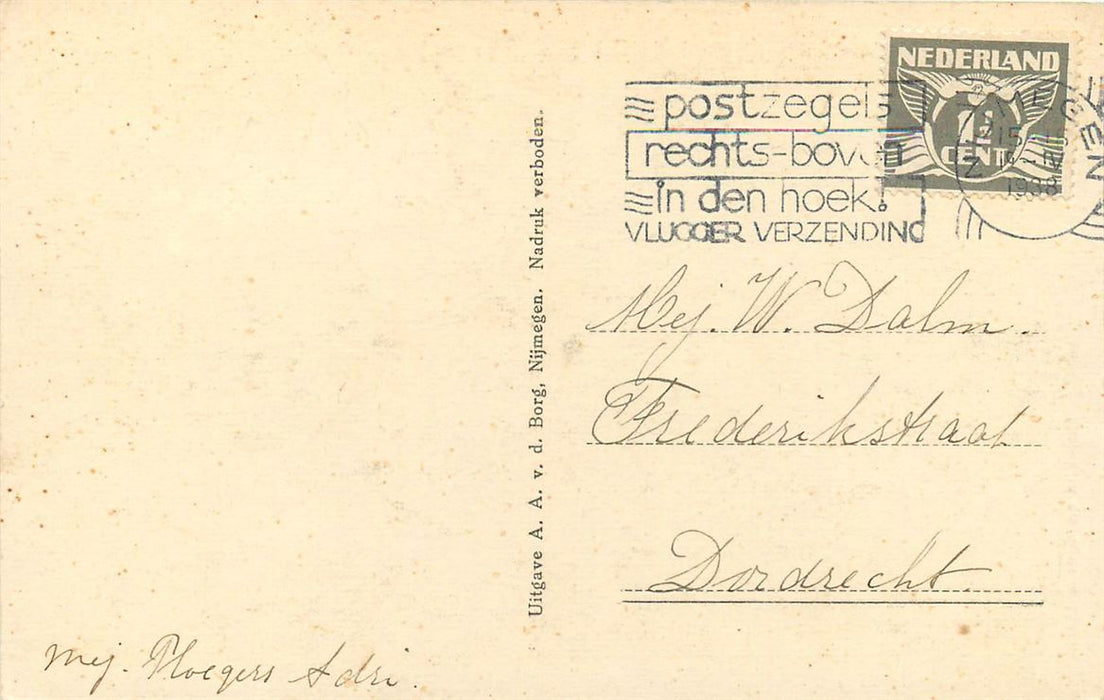 NEDERLAND
1½
CENT
NIJMEGEN
15
IV
1938
postzegels
rechts-boven
in den hoek!
VLUGGER VERZENDING
Mej. W. Dalm.
Frederikstraat
Dordrecht.
Uitgave A. A. v. d. Borg, Nijmegen. Nadruk verboden.
Mej. Ploegers Adri.